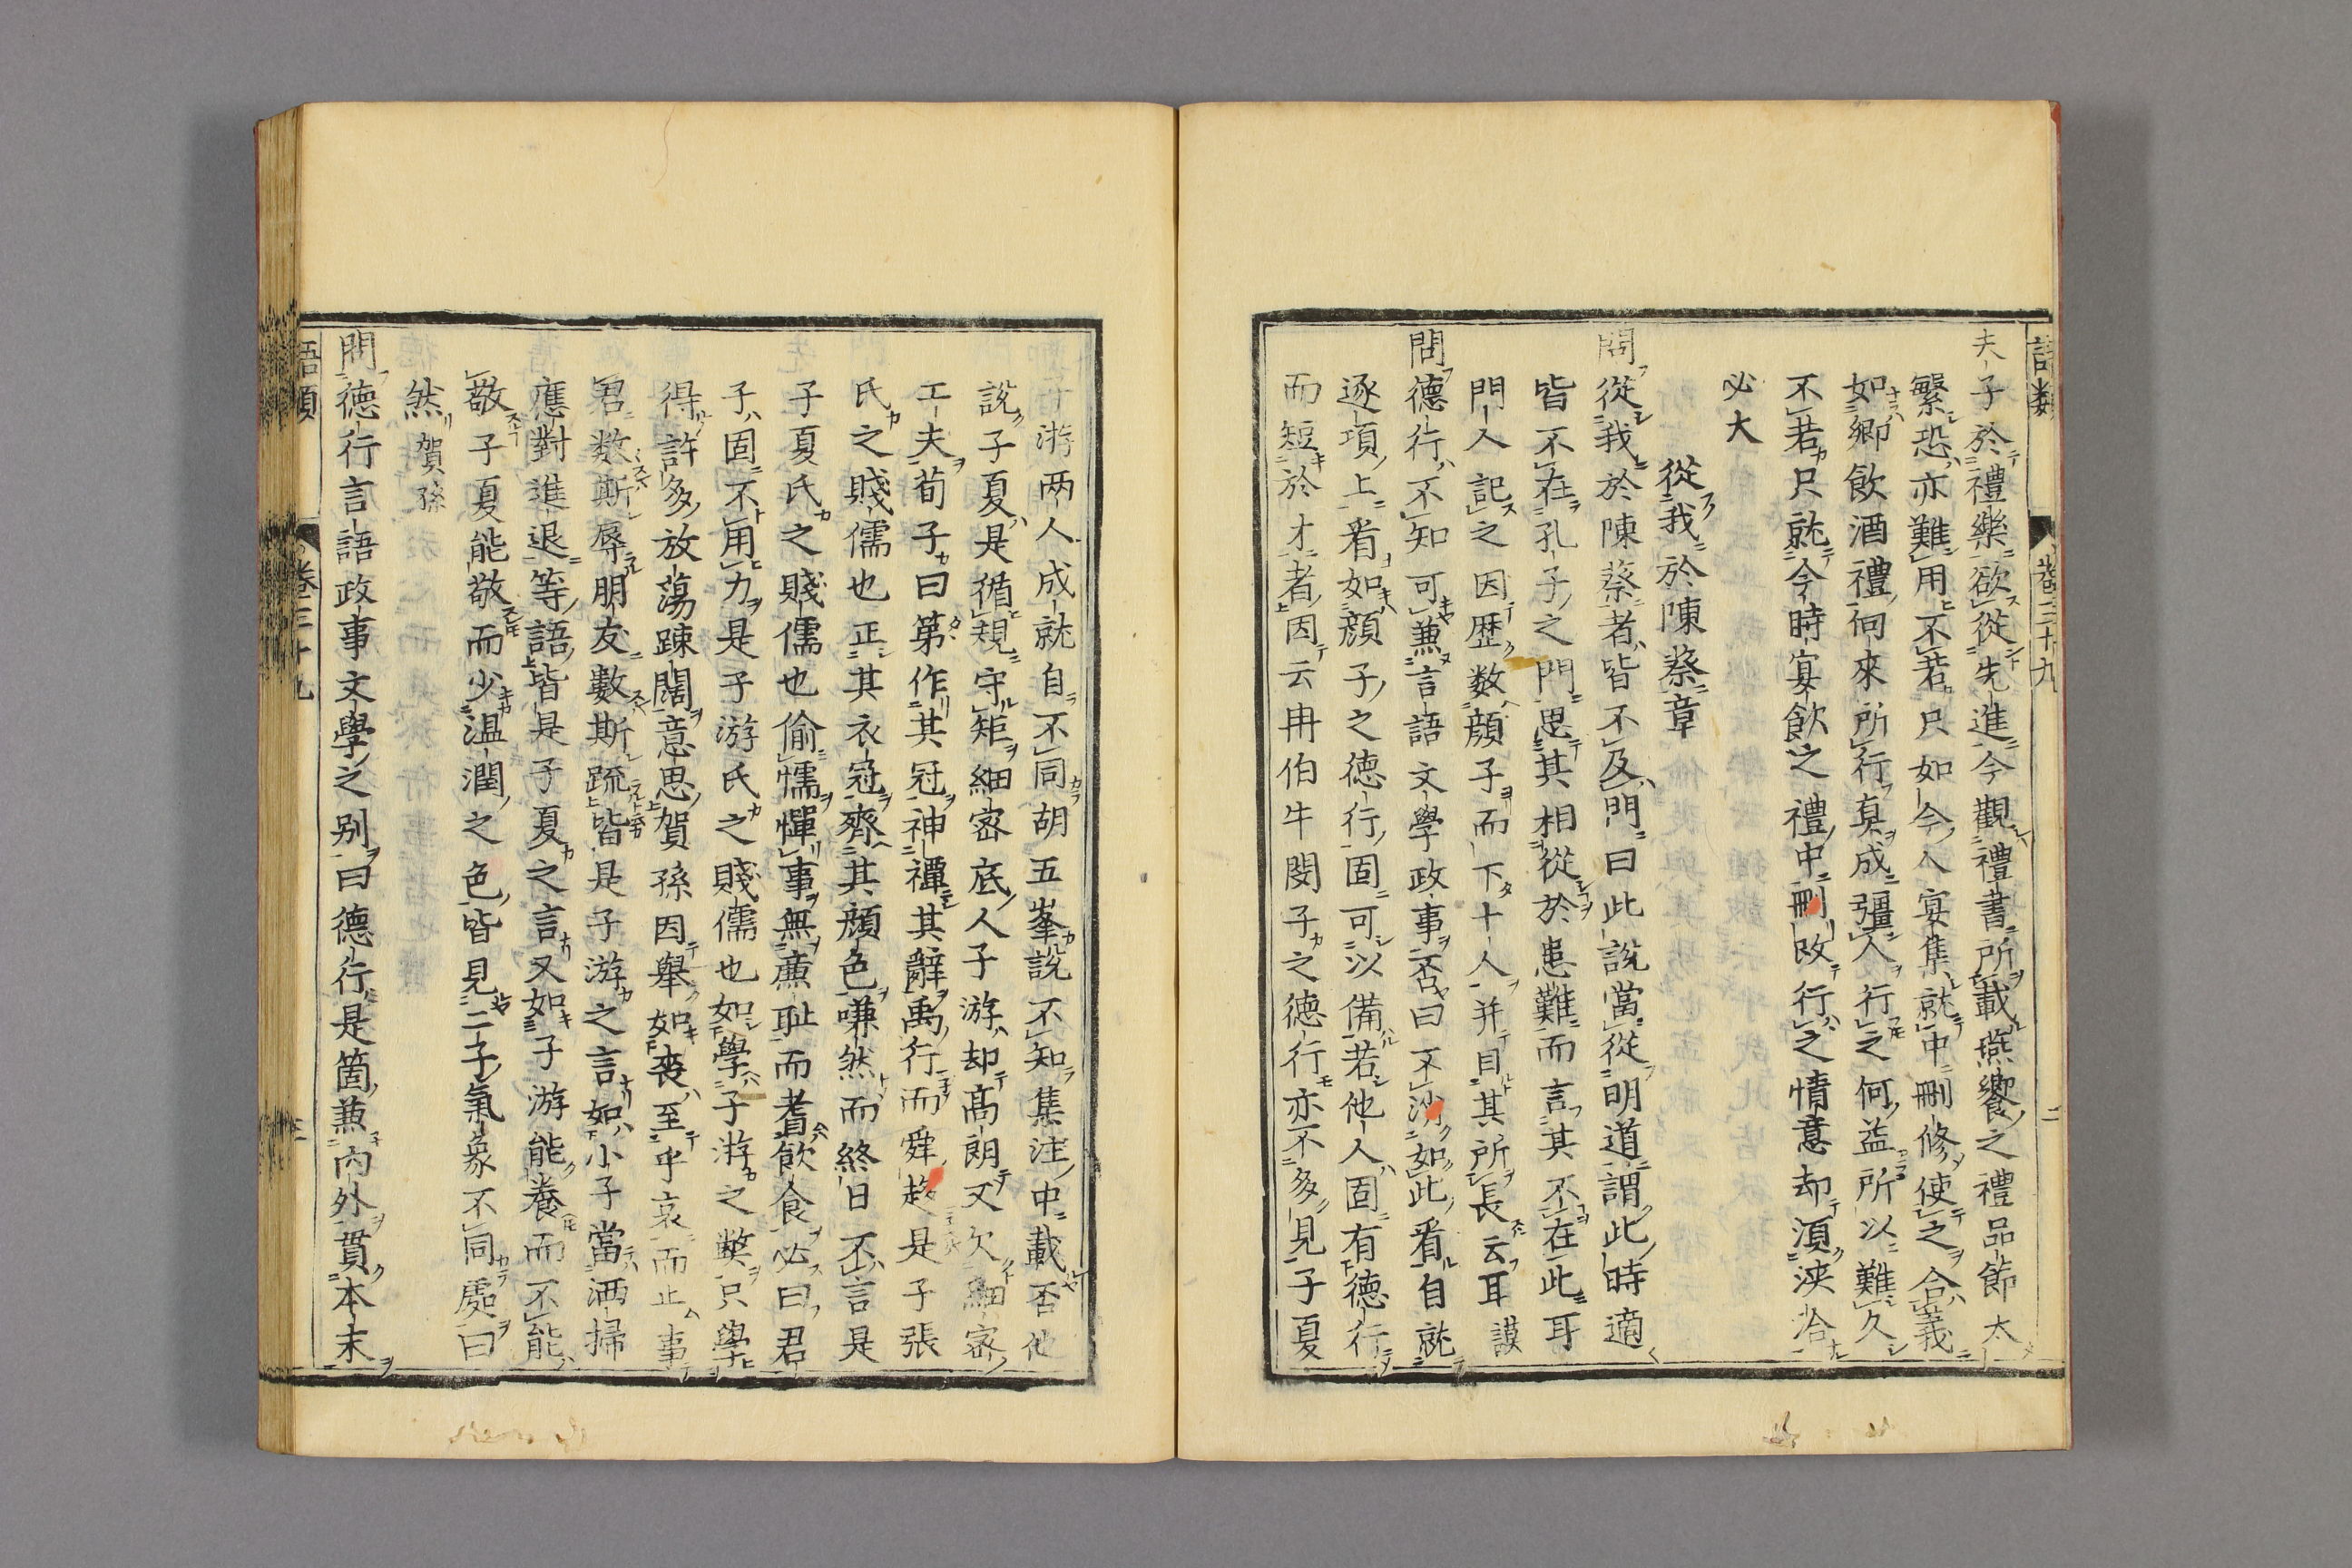 語類 卷三十九 二
夫子於禮樂欲從先進今觀禮書所載燕饗之禮品節太
繁恐亦難用不若只如今人宴集就中刪修使之合義
如鄉飲酒禮向來所行真成彊人行之何益所以難久
不若只就今時宴飲之禮中刪改行之情意却須浹洽
必大
從我於陳蔡章
問從我於陳蔡者皆不及門曰此說當從明道謂此時適
皆不在孔子之門思其相從於患難而言其不在此耳
門人記之因歷数顔子而下十人并目其所長云耳謨
問德行不知可兼言語文學政事否曰不消如此看自就
逐項上看如顔子之德行固可以備若他人固有德行
而短於才者因云冉伯牛閔子之德行亦不多見子夏
子游両人成就自不同胡五峯說不知集注中載否他
說子夏是循規守矩細宻底人子游却高朗又欠細宻
工夫荀子曰第作其冠神禫其辭禹行而舜趨是子張
氏之賤儒也正其衣冠齊其顔色嗛然而終日不言是
子夏氏之賤儒也偷懦憚事無廉耻而耆飲食必曰君
子固不用力是子游氏之賤儒也如學子游之弊只學
得許多放蕩踈闊意思賀孫因舉如喪至乎哀而止事
君数斯辱朋友數斯疏皆是子游之言如小子當洒掃
應對進退等語皆是子夏之言又如子游能養而不能
敬子夏能敬而少温潤之色皆見二子氣象不同處曰
然賀孫
問德行言語政事文學之别曰德行是箇兼内外貫本末
語類 卷三十九 三